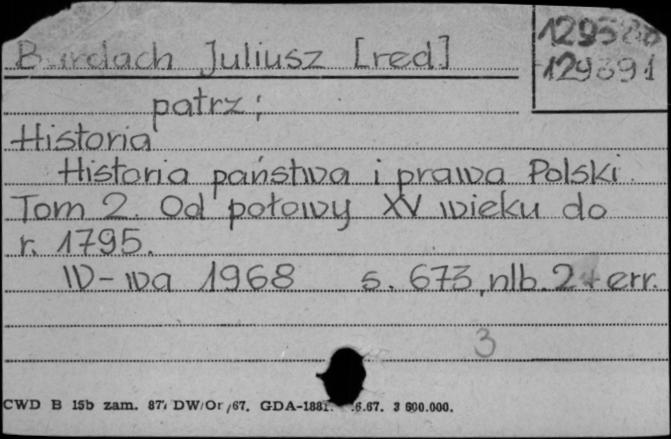 Bardach Juliusz [red]
129391
patrz:
Historia
Historia państwa i prawa Polski.
Tom 2. Od połowy XV wieku do
r. 1795.
W-wa 1968 s. 673, nlb. 2 + err.
3
CWD B 15b zam. 87/ DW/Or/67. GDA-1881. 6.67. 3 600.000.